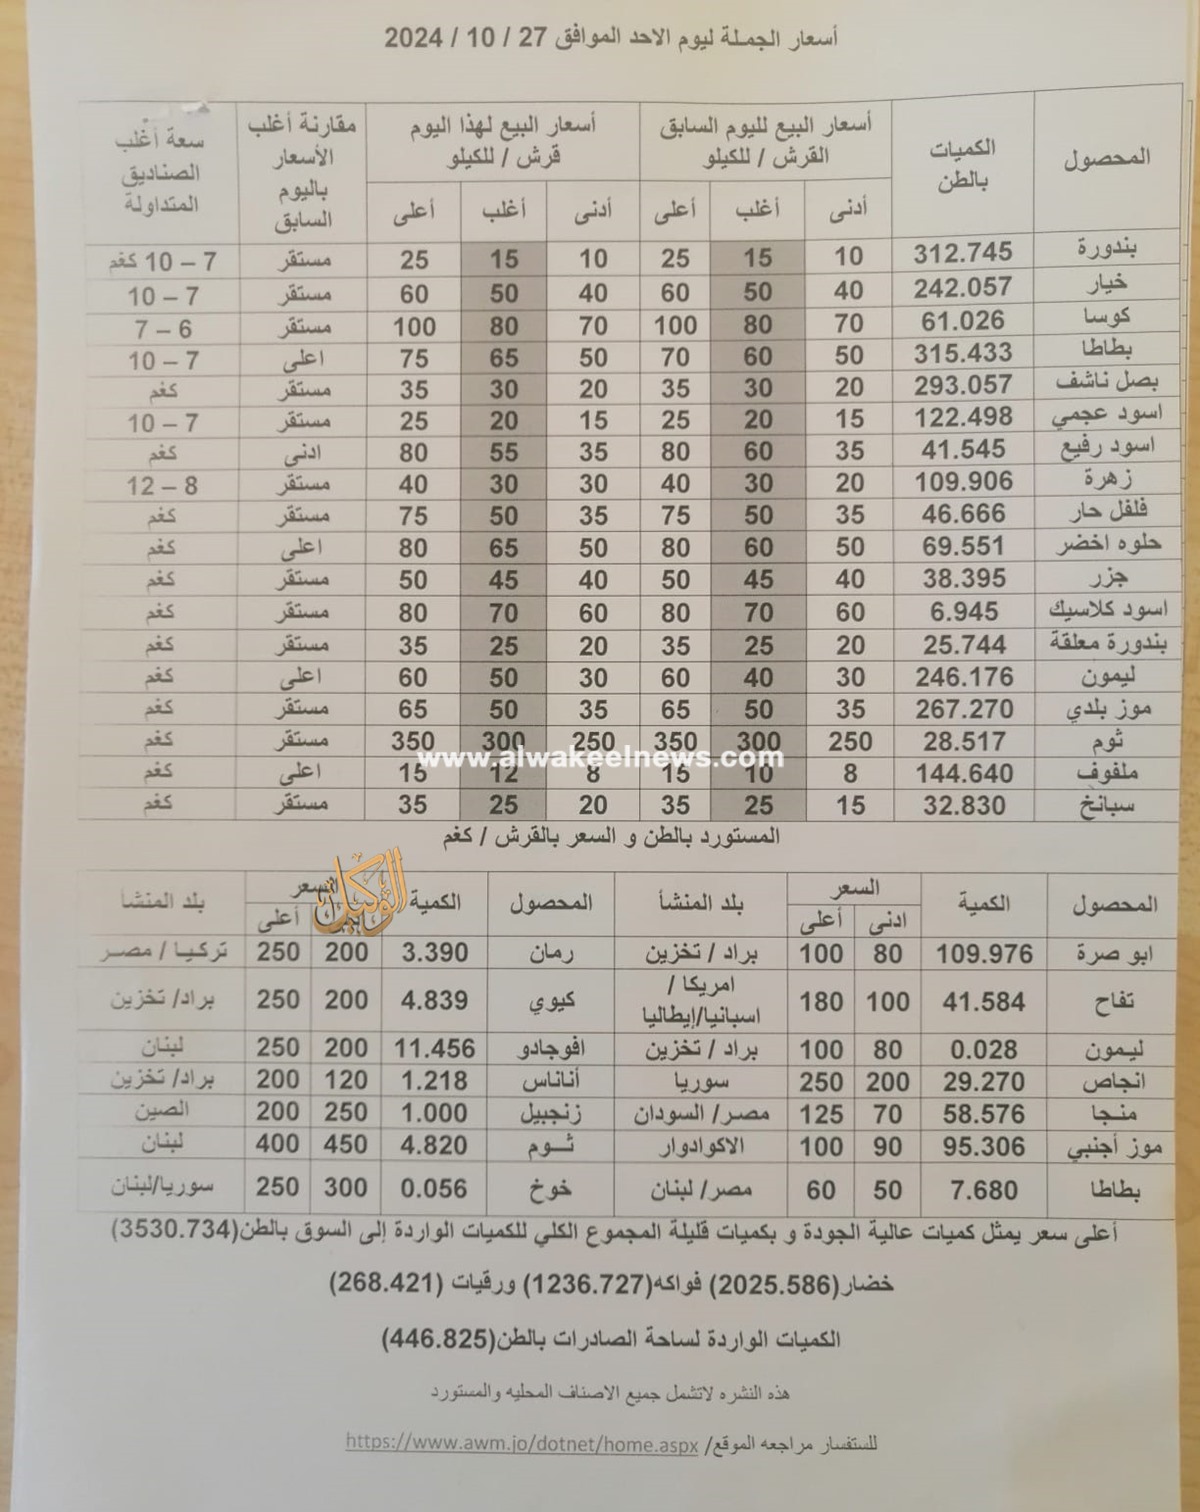 أسعار الجملة ليوم الاحد الموافق 27 / 10 / 2024
المحصول الكميات بالطن أسعار البيع لليوم السابق القرش / للكيلو أسعار البيع لهذا اليوم قرش / للكيلو مقارنة أغلب الأسعار باليوم السابق سعة أغلب الصناديق المتداولة
أدنى أغلب أعلى أدنى أغلب أعلى
بندورة 312.745 10 15 25 10 15 25 مستقر 7 – 10 كغم
خيار 242.057 40 50 60 40 50 60 مستقر 7 – 10
كوسا 61.026 70 80 100 70 80 100 مستقر 6 – 7
بطاطا 315.433 50 60 70 50 65 75 اعلى 7 – 10
بصل ناشف 293.057 20 30 35 20 30 35 مستقر كغم
اسود عجمي 122.498 15 20 25 15 20 25 مستقر 7 – 10
اسود رفيع 41.545 35 60 80 35 55 80 ادنى كغم
زهرة 109.906 20 30 40 30 30 40 مستقر 8 – 12
فلفل حار 46.666 35 50 75 35 50 75 مستقر كغم
حلوه اخضر 69.551 50 60 80 50 65 80 اعلى كغم
جزر 38.395 40 45 50 40 45 50 مستقر كغم
اسود كلاسيك 6.945 60 70 80 60 70 80 مستقر كغم
بندورة معلقة 25.744 20 25 35 20 25 35 مستقر كغم
ليمون 246.176 30 40 60 30 50 60 اعلى كغم
موز بلدي 267.270 35 50 65 35 50 65 مستقر كغم
ثوم 28.517 250 300 350 250 300 350 مستقر كغم
www.alwakeelnews.com
ملفوف 144.640 8 10 15 8 12 15 اعلى كغم
سبانخ 32.830 15 25 35 20 25 35 مستقر كغم
المستورد بالطن و السعر بالقرش / كغم
الوكيل
المحصول الكمية السعر بلد المنشأ المحصول الكمية السعر بلد المنشأ
ادنى أعلى أعلى
ابو صرة 109.976 80 100 براد / تخزين رمان 3.390 200 250 تركيا / مصر
تفاح 41.584 100 180 امريكا / اسبانيا/إيطاليا كيوي 4.839 200 250 براد/ تخزين
ليمون 0.028 80 100 براد / تخزين افوجادو 11.456 200 250 لبنان
انجاص 29.270 200 250 سوريا أناناس 1.218 120 200 براد/ تخزين
منجا 58.576 70 125 مصر/ السودان زنجبيل 1.000 250 200 الصين
موز أجنبي 95.306 90 100 الاكوادوار ثوم 4.820 450 400 لبنان
بطاطا 7.680 50 60 مصر/ لبنان خوخ 0.056 300 250 سوريا/لبنان
أعلى سعر يمثل كميات عالية الجودة و بكميات قليلة المجموع الكلي للكميات الواردة إلى السوق بالطن(3530.734)
خضار(2025.586) فواكه(1236.727) ورقيات (268.421)
الكميات الواردة لساحة الصادرات بالطن(446.825)
هذه النشره لاتشمل جميع الاصناف المحليه والمستورد
للستفسار مراجعه الموقع/ https://www.awm.jo/dotnet/home.aspx